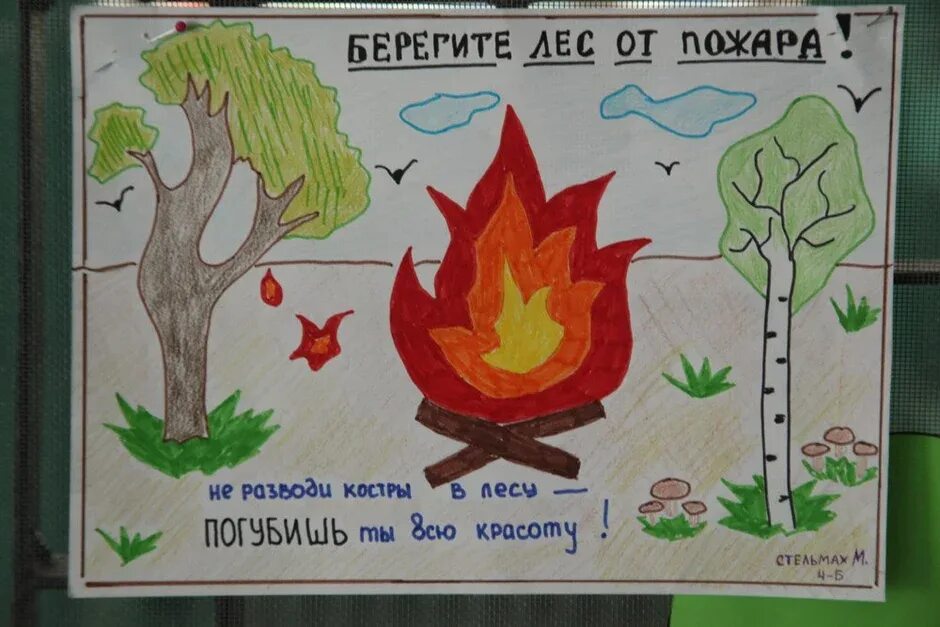 БЕРЕГИТЕ ЛЕС ОТ ПОЖАРА!
не разводи костры в лесу —
ПОГУБИШЬ ты всю красоту!
СТЕЛЬМАХ М.
4-Б